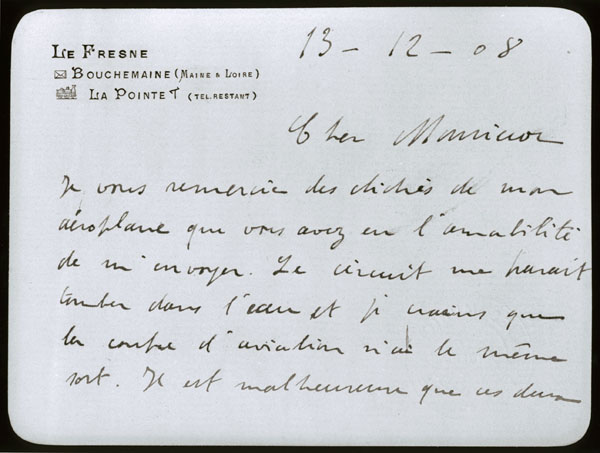 LE FRESNE
BOUCHEMAINE (MAINE & LOIRE)
LA POINTE T (TEL. RESTANT)
13 - 12 - 08
Cher Monsieur
Je vous remercie des clichés de mon
aéroplane que vous avez eu l'amabilité
de m'envoyer. Le circuit me parait
tomber dans l'eau et je crains que
la coupe d'aviation n'ai le même
sort. Il est malheureux que ces deux